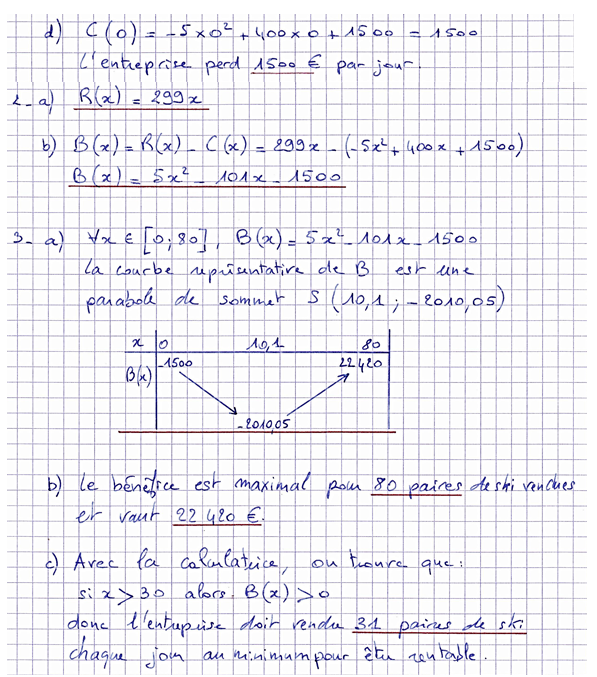 d) C(0) = -5×0² + 400×0 + 1500 = 1500
L'entreprise perd 1500 € par jour.
2_ a) R(x) = 299x
b) B(x) = R(x) - C(x) = 299x - (-5x² + 400x + 1500)
B(x) = 5x² - 101x - 1500
3_ a) ∀x ∈ [0;80], B(x) = 5x² - 101x - 1500
La courbe représentative de B est une
parabole de sommet S (10,1 ; -2010,05)
x 0 10,1 80
B(x) -1500 22420
-2010,05
b) Le bénéfice est maximal pour 80 paires de ski vendues
et vaut 22 420 €.
c) Avec la calculatrice, on trouve que :
si x > 30 alors B(x) > 0
donc l'entreprise doit vendre 31 paires de ski
chaque jour au minimum pour être rentable.